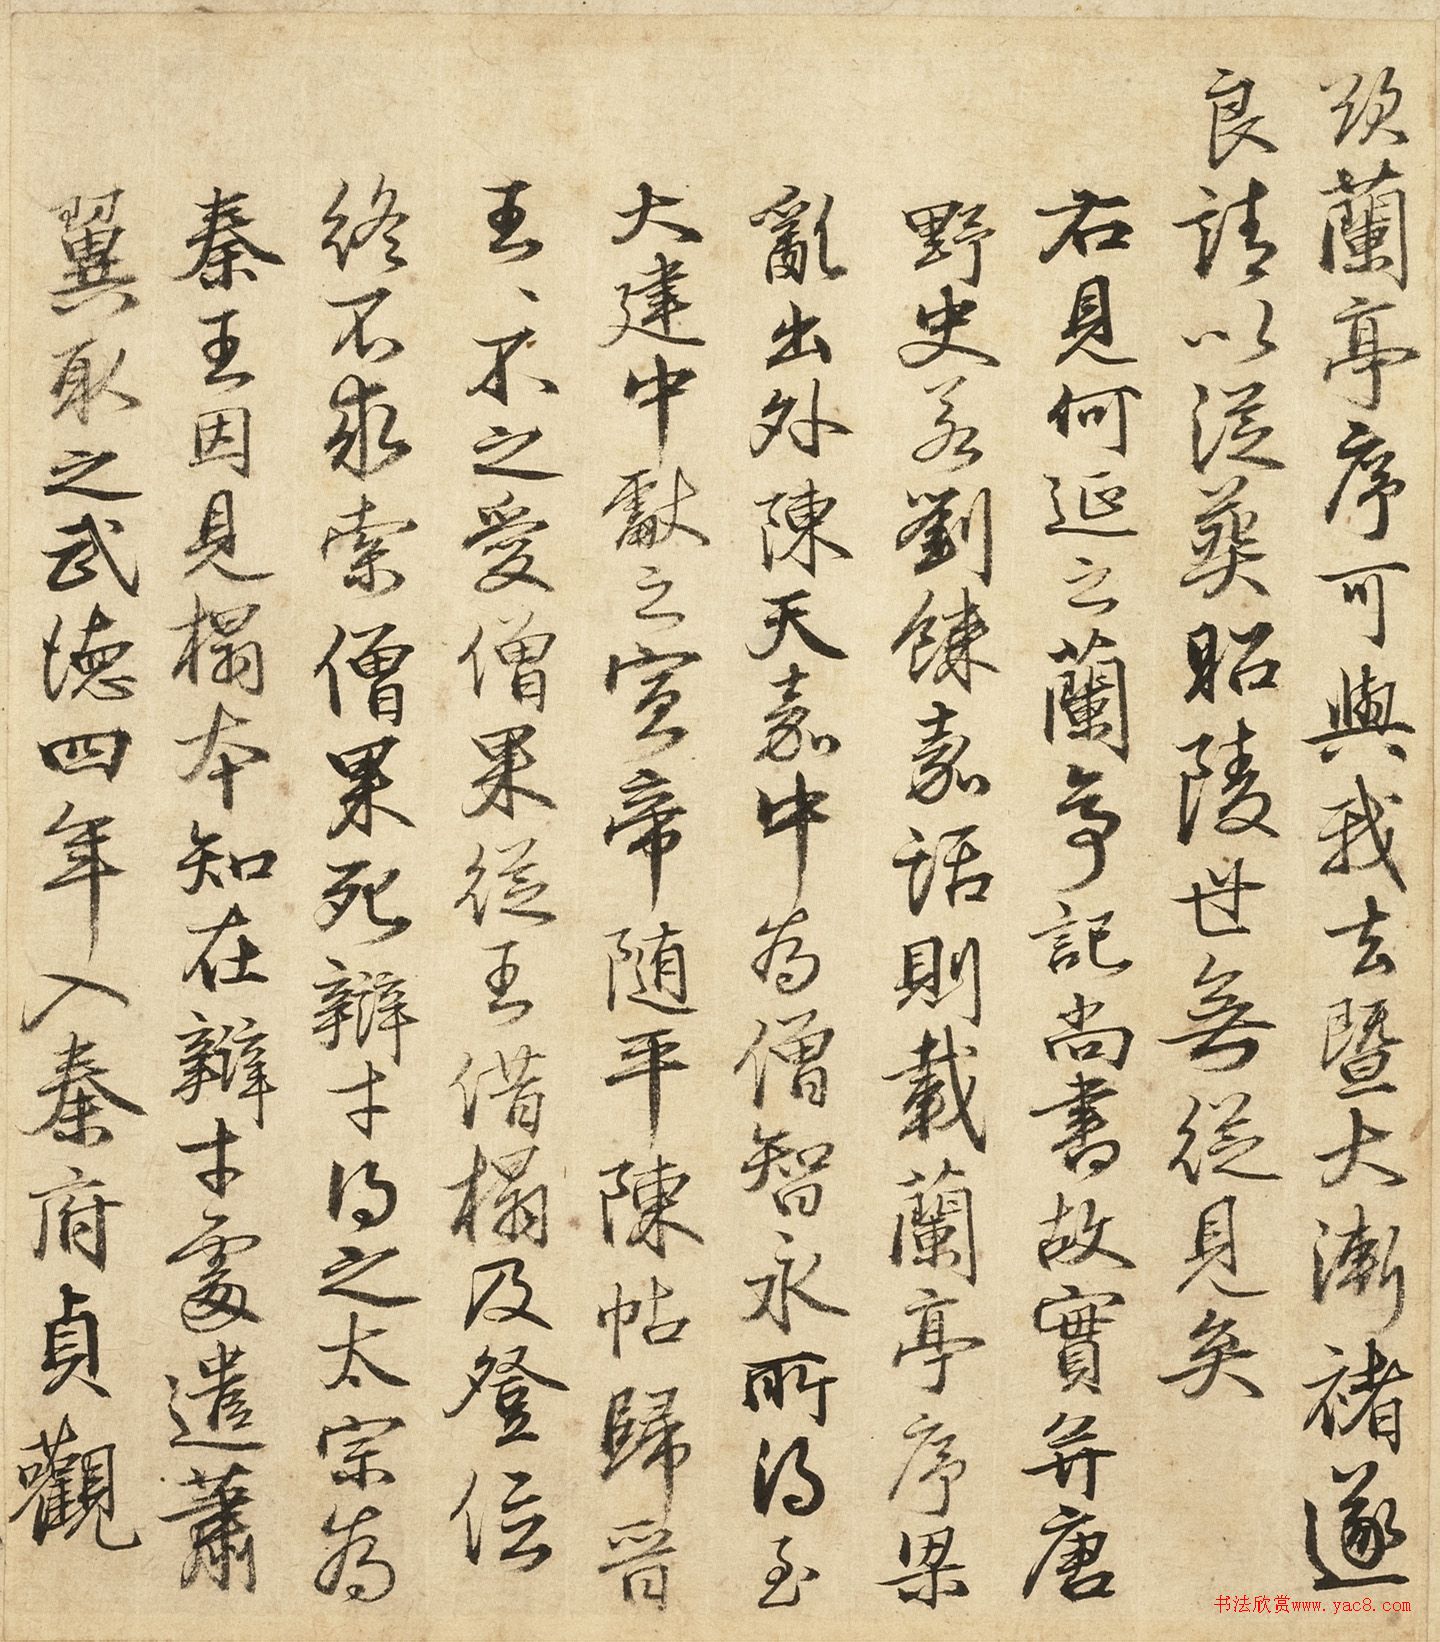 欲蘭亭序可與我去暨大漸褚遂
良請以從葬昭陵世無從見矣
右見何延之蘭亭記尚書故實并唐
野史若劉餗嘉話則載蘭亭序梁
亂出外陳天嘉中為僧智永所得至
大建中獻之宣帝隨平陳帖歸晉
王、不之愛僧果從王借榻及登位
終不求索僧果死辯才得之太宗為
秦王因見榻本知在辯才處遣蕭
翼取之武德四年入秦府貞觀
书法欣赏www.yac8.com